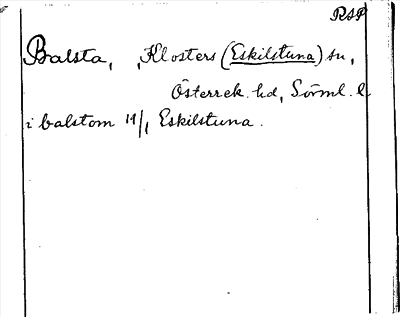 RSP
Balsta, Klosters (Eskilstuna) sn,
Österrek. hd, Sörml. l
i balstom 14/1 Eskilstuna.